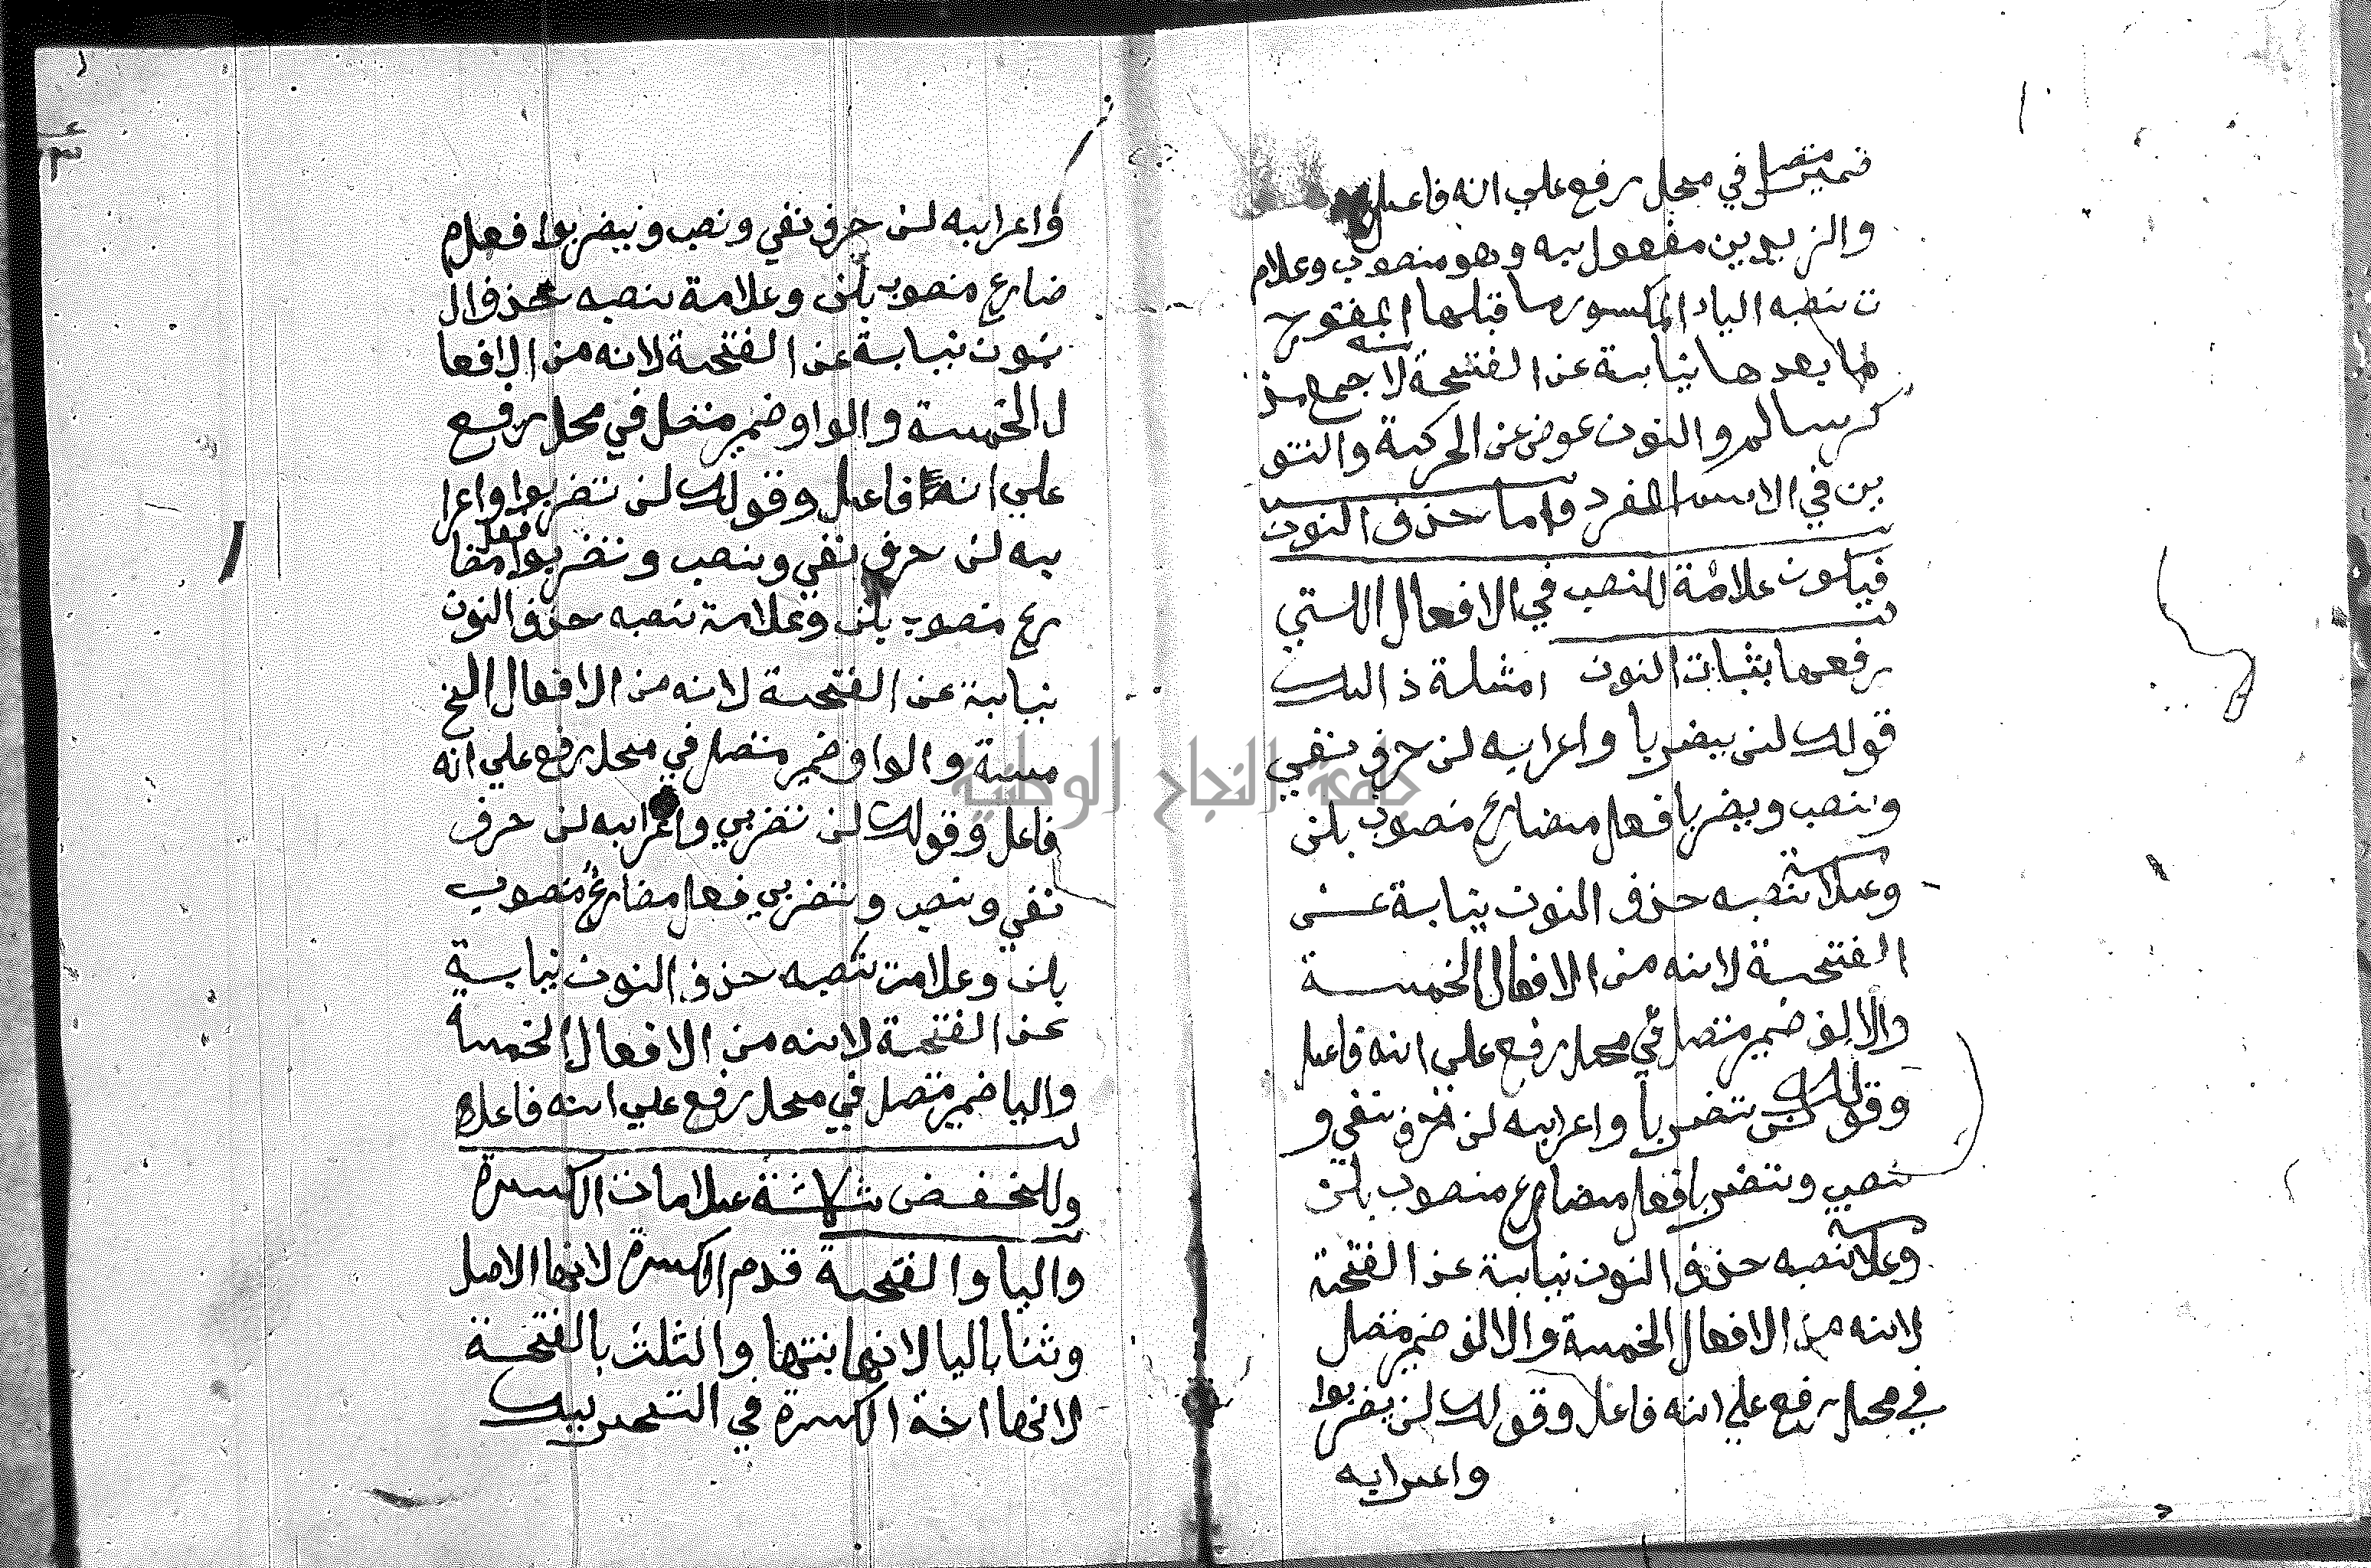 ضمير متصل في محل رفع علي انه فاعل
والزيدين مفعول به وهو منصوب وعلام
ت نصبه الياء المكسور ما قبلها المفتوح
ما بعدها نيابة عن الفتحة لانه جمع مذ
كر سالم والنون عوض عن الحركة والتنو
ين في الاسم المفرد واما حذف النون
فيكون علامة للنصب في الافعال اللتي
رفعها بثبات النون امثلة ذالك
قولك لن يضربا واعرابه لن حرف نفي
ونصب ويضربا فعل مضارع منصوب بلن
وعلامة نصبه حذف النون نيابة عن
الفتحة لانه من الافعال الخمسة
والالف ضمير متصل في محل رفع علي انه فاعل
وقولك لن تضربا واعرابه لن حرف نفي و
نصب وتضربا فعل مضارع منصوب بلن
وعلامة نصبه حذف النون نيابة عن الفتحة
لانه من الافعال الخمسة والالف ضمير متصل
في محل رفع علي انه فاعل وقولك لن يضربوا
واعرابه
واعرابه لن حرف نفي ونصب ويضربوا فعل م
ضارع منصوب بلن وعلامة نصبه حذف ال
نون نيابة عن الفتحة لانه من الافعا
ل الخمسة والواو ضمير متصل في محل رفع
علي انه فاعل وقولك لن تضربوا واعرا
به لن حرف نفي ونصب وتضربوا فعل مضا
رع منصوب بلن وعلامة نصبه حذف النون
نيابة عن الفتحة لانه من الافعال الخ
مسة والواو ضمير متصل في محل رفع علي انه
فاعل وقولك لن تضربي واعرابه لن حرف
نفي ونصب وتضربي فعل مضارع منصوب
بلن وعلامت نصبه حذف النون نيابة
عن الفتحة لانه من الافعال الخمسة
واليا ضمير متصل في محل رفع علي انه فاعل
وللخفض ثلاثة علامات الكسرة
واليا والفتحة قدم الكسرة لانها الاصل
وثنا باليا لانها بنتها والثلث بالفتحة
لانها اخة الكسرة في التحريك
جامعة النجاح الوطنية